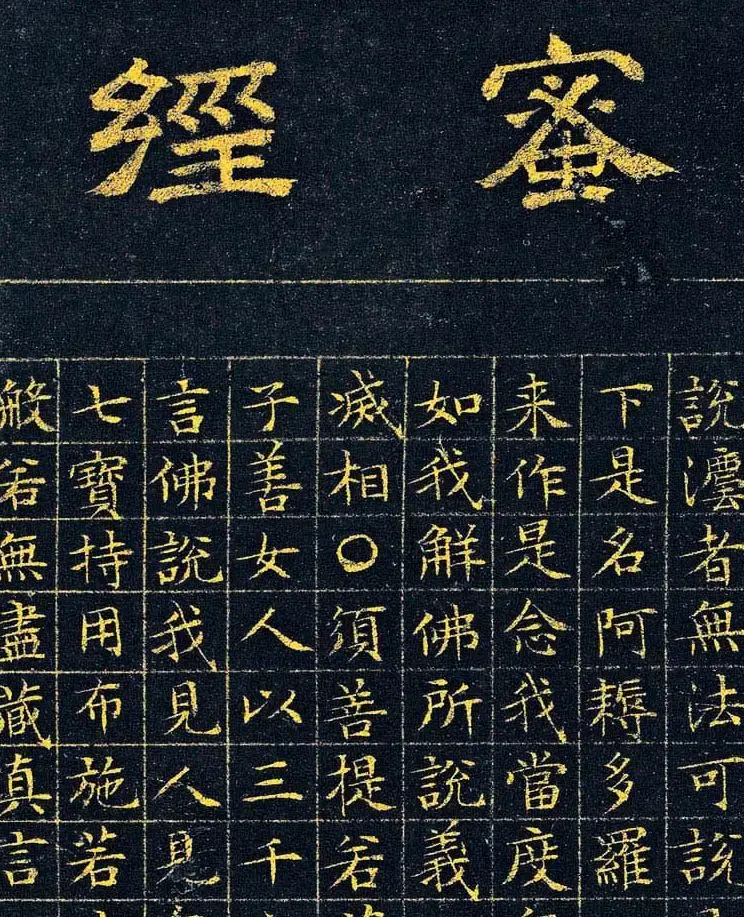 蜜經
說灋者無法可說
下是名阿耨多羅
来作是念我當度
如我解佛所說義
滅相〇須菩提若
子善女人以三千
言佛說我見人見
七寶持用布施若
般若無盡藏真言